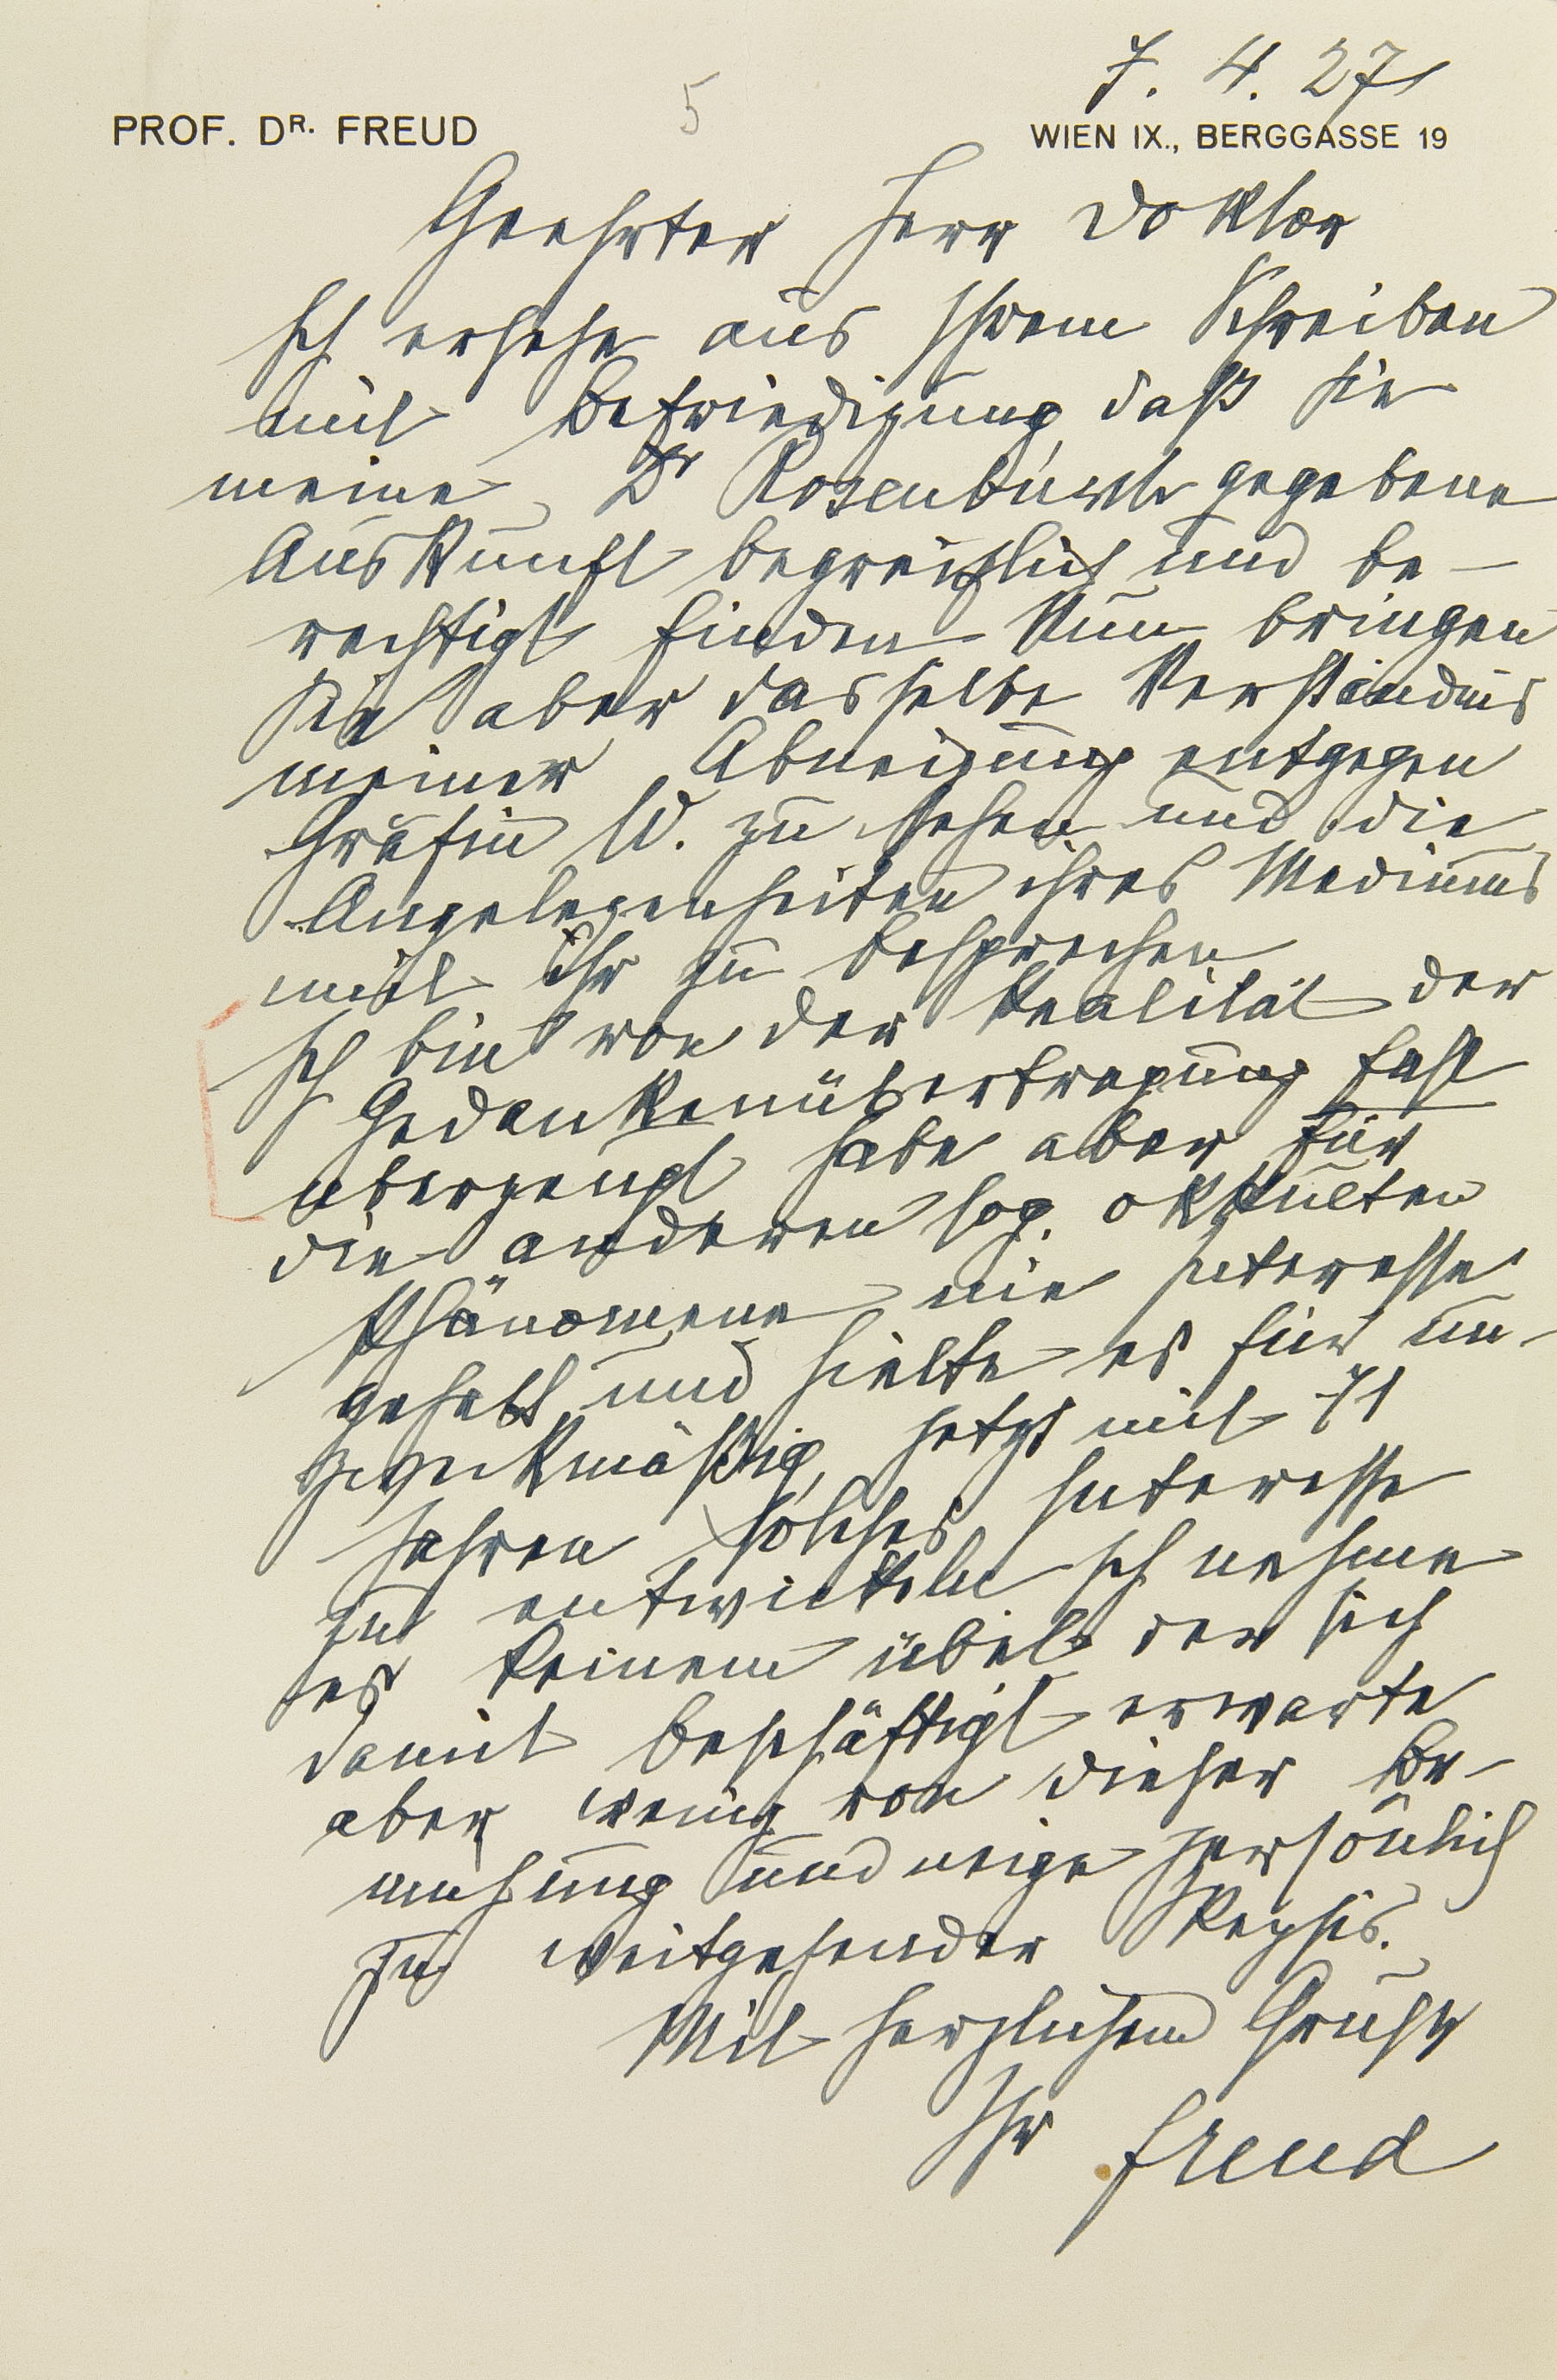 7. 4. 27
5
PROF. DR. FREUD WIEN IX., BERGGASSE 19
Geehrter Herr Doktor
Ich ersehe aus Ihrem Schreiben
mit Befriedigung, daß Sie
meine, Dr gegebene
Auskunft begreiflich und be-
rechtigt finden. Nun bringen
Sie aber dasselbe Verständnis
meiner Abneigung entgegen
Gräfin W. zu sehen und die
Angelegenheiten ihres Mediums
mit ihr zu besprechen
Ich bin von der Realität der
Gedankenübertragung fast
überzeugt habe aber für
die anderen sog. okkulten
Phänomene nie Interesse
gehabt und hielte es für un-
zweckmäßig, jetzt mit 71
Jahren solches Interesse
zu entwickeln Ich nehme
es keinem übel der sich
damit beschäftigt erwarte
aber wenig von dieser Be-
mühung und neige persönlich
zu weitgehender Skepsis.
Mit herzlichem Gruß
Ihr Freud